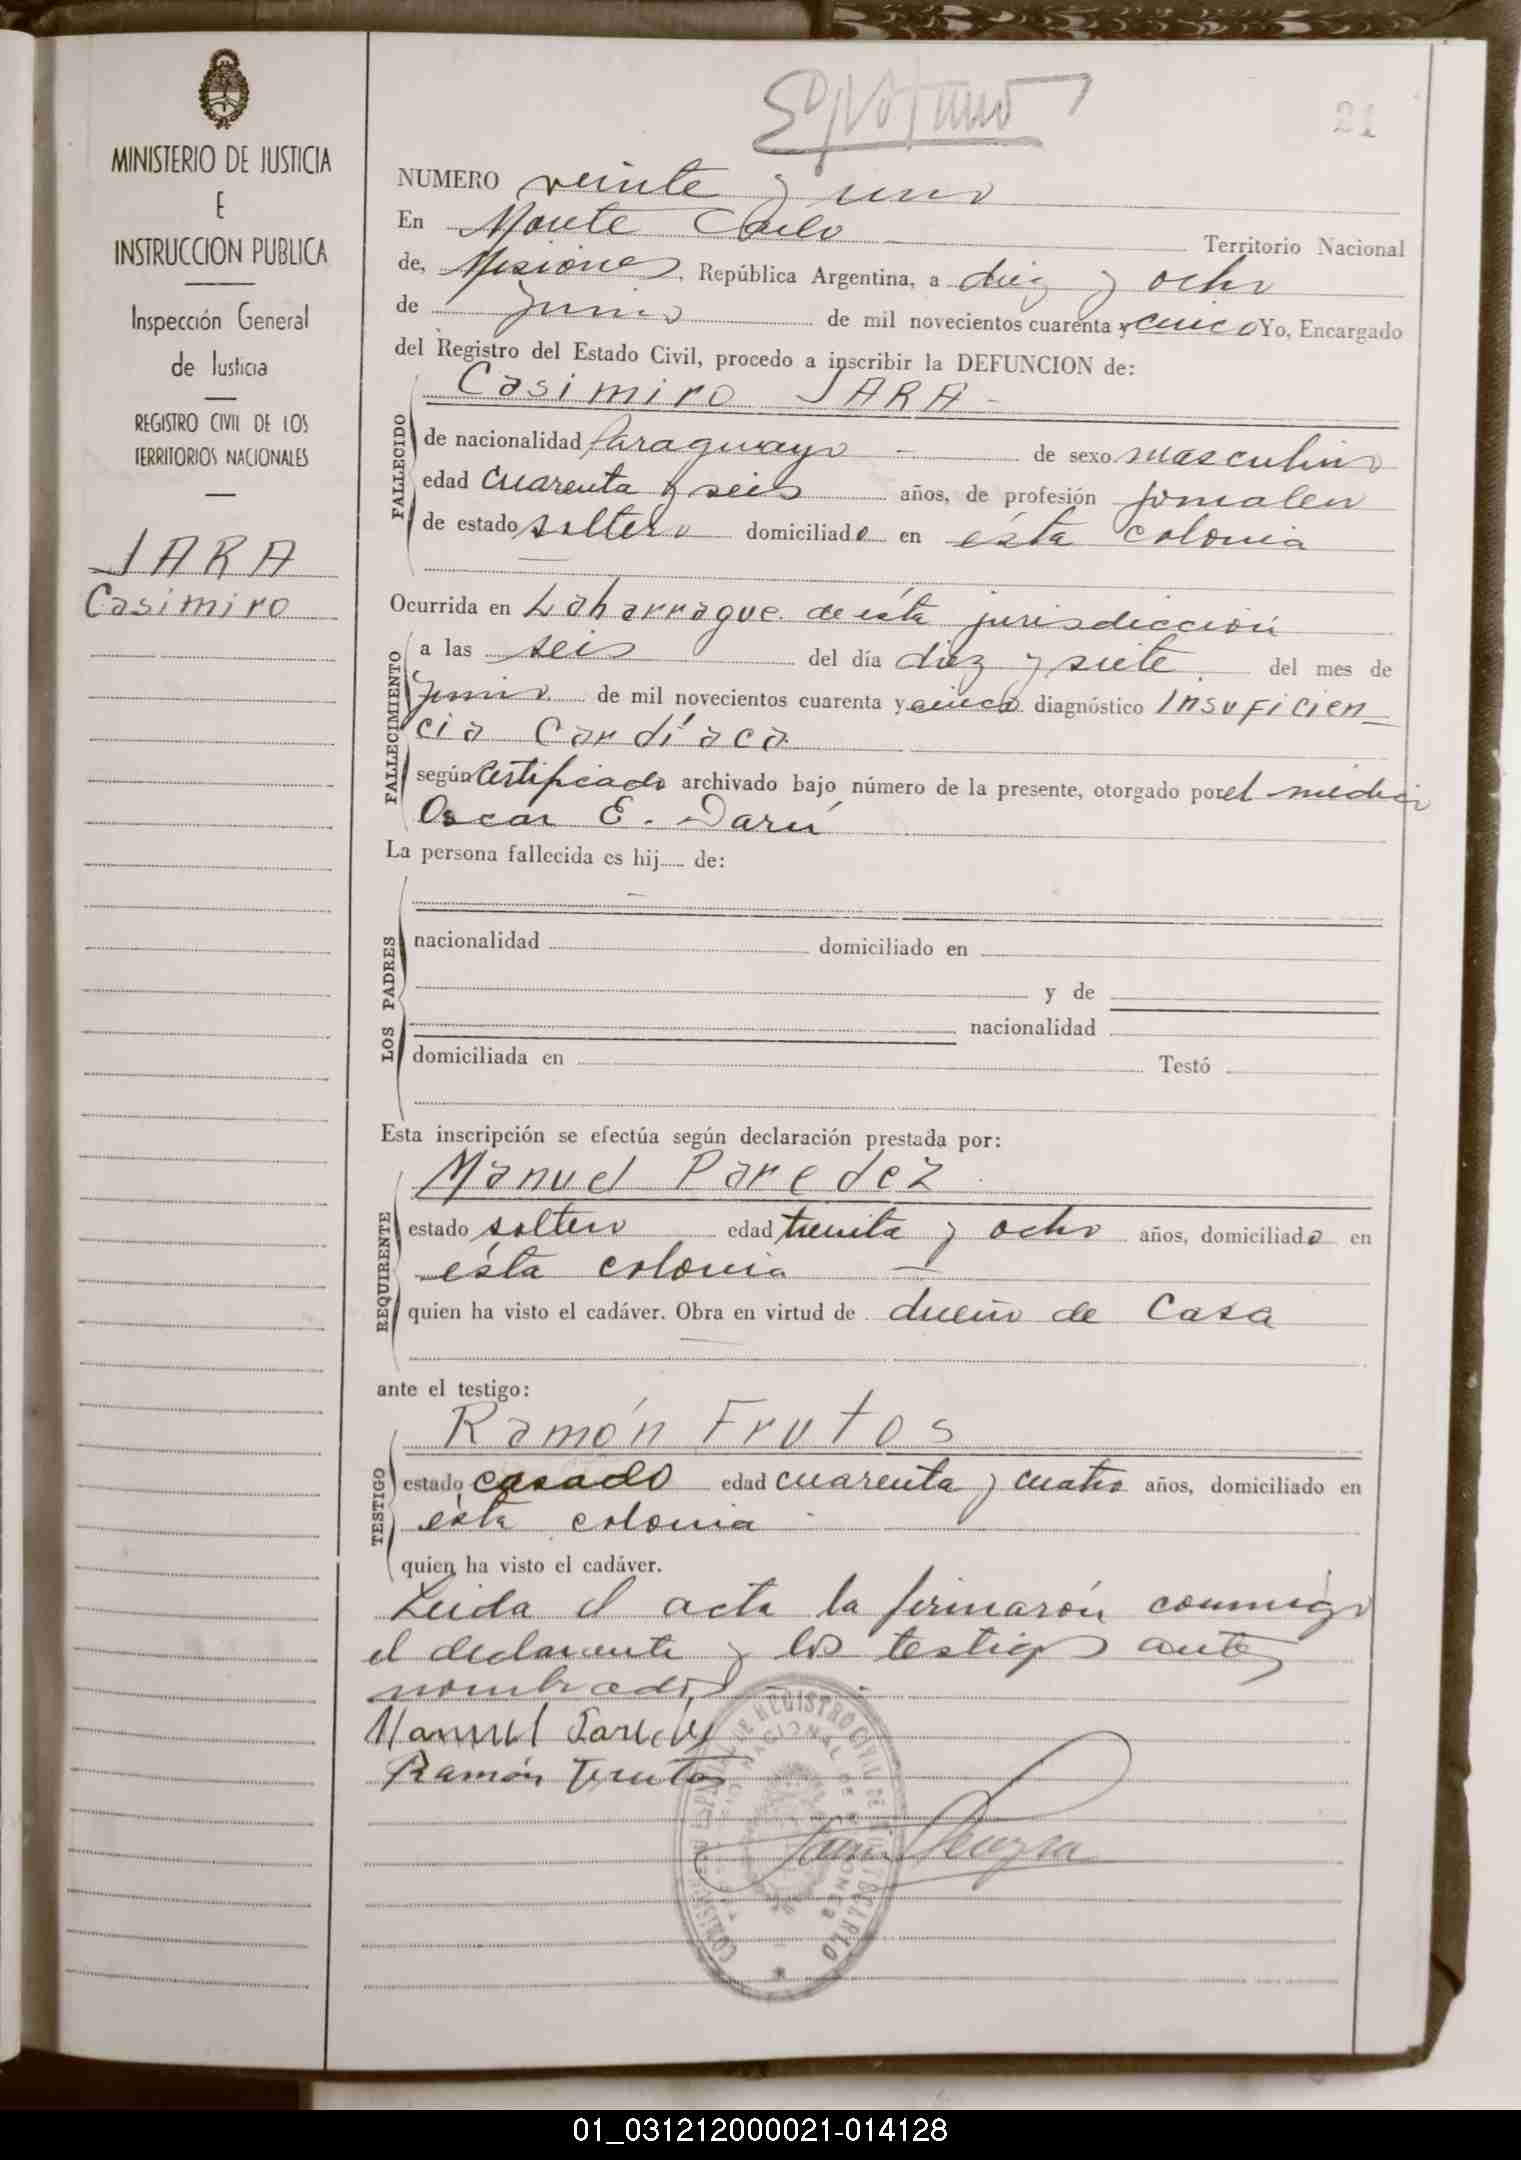 21
MINISTERIO DE JUSTICIA
E
INSTRUCCION PUBLICA
Inspección General
de Justicia
REGISTRO CIVIL DE LOS
TERRITORIOS NACIONALES
JARA
Casimiro
NUMERO veinte y uno
En Monte Carlo Territorio Nacional
de, Misiones, República Argentina, a diez y ocho
de Junio de mil novecientos cuarenta y cinco Yo, Encargado
del Registro del Estado Civil, procedo a inscribir la DEFUNCION de:
Casimiro JARA -
FALLECIDO
de nacionalidad Paraguayo - de sexo masculino
edad cuarenta y seis años, de profesión jornalero
de estado soltero domiciliado en ésta colonia
Ocurrida en Laharrague de ésta jurisdicción
FALLECIMIENTO
a las seis del día diez y siete. del mes de
Junio de mil novecientos cuarenta y cinco diagnóstico Insuficien=
cia Cardíaca
según certificado archivado bajo número de la presente, otorgado por el médico
Oscar E. Darú
La persona fallecida es hij de:
LOS PADRES
nacionalidad domiciliado en
y de
nacionalidad
domiciliada en Testó
Esta inscripción se efectúa según declaración prestada por:
Manuel Paredez
REQUIRENTE
estado soltero edad treinta y ocho años, domiciliado en
ésta colonia -
quien ha visto el cadáver. Obra en virtud de dueño de Casa
ante el testigo:
Ramón Frutos
TESTIGO
estado casado edad cuarenta y cuatro años, domiciliado en
ésta colonia -
quien ha visto el cadáver.
Leida el acta la firmarón conmigo
el declarante y los testigos antes
nombrados
Manuel Paredez
Ramón Frutos
01_031212000021-014128